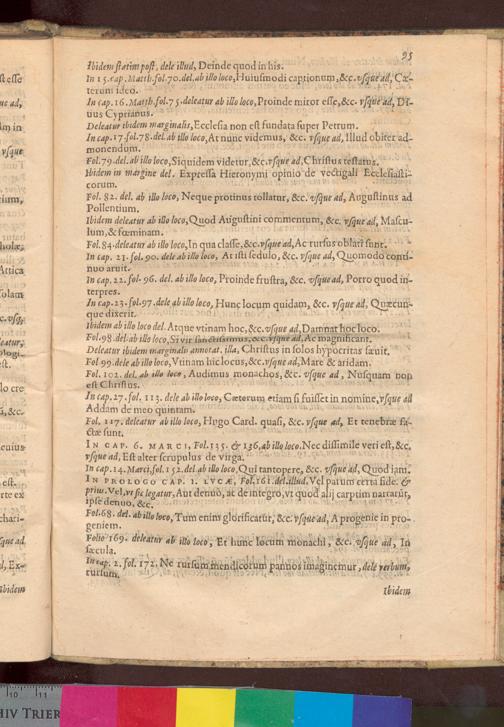 95
Ibidem statim post, dele illud, Deinde quod in his.
In 15. cap. Matth. fol. 70. del. ab illo loco, Huiusmodi captionum, &c. vsque ad, Cæ-
terum ideo.
In cap. 16. Matth. fol. 75. deleatur ab illo loco, Proinde miror esse, &c. vsque ad, Di-
uus Cyprianus.
Deleatur ibidem marginalis, Ecclesia non est fundata super Petrum.
In cap. 17. fol. 78. del. ab illo loco, At nunc videmus, &c. vsque ad, Illud obiter ad-
monendum.
Fol. 79. del. ab illo loco, Siquidem videtur, &c. vsque ad, Christus testatus.
Ibidem in margine del. Expressa Hieronymi opinio de vectigali Ecclesiasti-
corum.
Fol. 82. del. ab illo loco, Neque protinus tollatur, &c. vsque ad, Augustinus ad
Pollentium.
Ibidem deleatur ab illo loco, Quod Augustini commentum, &c. vsque ad, Mascu-
lum, & fœminam.
Fol. 84. deleatur ab illo loco, In qua classe, &c. vsque ad, Ac rursus oblati sunt.
In cap. 21. fol. 90. dele ab illo loco, At isti sedulo, &c. vsque ad, Quomodo conti-
nuo aruit.
In cap. 22. fol. 96. del. ab illo loco, Proinde frustra, &c. vsque ad, Porro quod in-
terpres.
In cap. 23. fol. 97. dele ab illo loco, Hunc locum quidam, &c. vsque ad, Quæcun-
que dixerit.
Ibidem ab illo loco del. Atque vtinam hoc, &c. vsque ad, Damnat hoc loco.
Fol. 98. del. ab illo loco, Si vir sanctissimus, &c. vsque ad, Ac magnificant.
Deleatur ibidem marginalis annotat. illa, Christus in solos hypocritas sæuit.
Fol 99. dele ab illo loco, Vtinam hic locus, &c. vsque ad, Mare & aridam.
Fol. 102. del. ab illo loco, Audimus monachos, &c. vsque ad, Nusquam non
est Christus.
In cap. 27. fol. 113. dele ab illo loco, Cæterum etiam si fuisset in nomine, vsque ad
Addam de meo quintam.
Fol. 117. deleatur ab illo loco, Hugo Card. quasi, &c. vsque ad, Et tenebræ fa-
ctæ sunt.
IN CAP. 6. MARCI, Fol. 135. & 136, ab illo loco. Nec dissimile veri est, &c.
vsque ad, Est alter scrupulus de virga.
In cap. 14. Marci, fol. 152. del. ab illo loco, Qui tantopere, &c. vsque ad, Quod jam.
IN PROLOGO CAP. 1. LVCÆ, Fol. 161. del. illud. Vel parum certa fide. &
prius. Vel, vt sic legatur, Aut denuò, ac de integro, vt quod alij carptim narrarūt,
ipse denuò, &c.
Fol. 68. del. ab illo loco, Tum enim glorificatur, &c. vsque ad, A progenie in pro-
geniem.
Folio 169. deleatur ab illo loco, Et hunc locum monachi, &c. vsque ad, In
sæcula.
In cap. 2. fol. 172. Ne rursum mendicorum pannos imaginemur, dele verbum,
rursum.
Ibidem
10 11
HIV TRIER